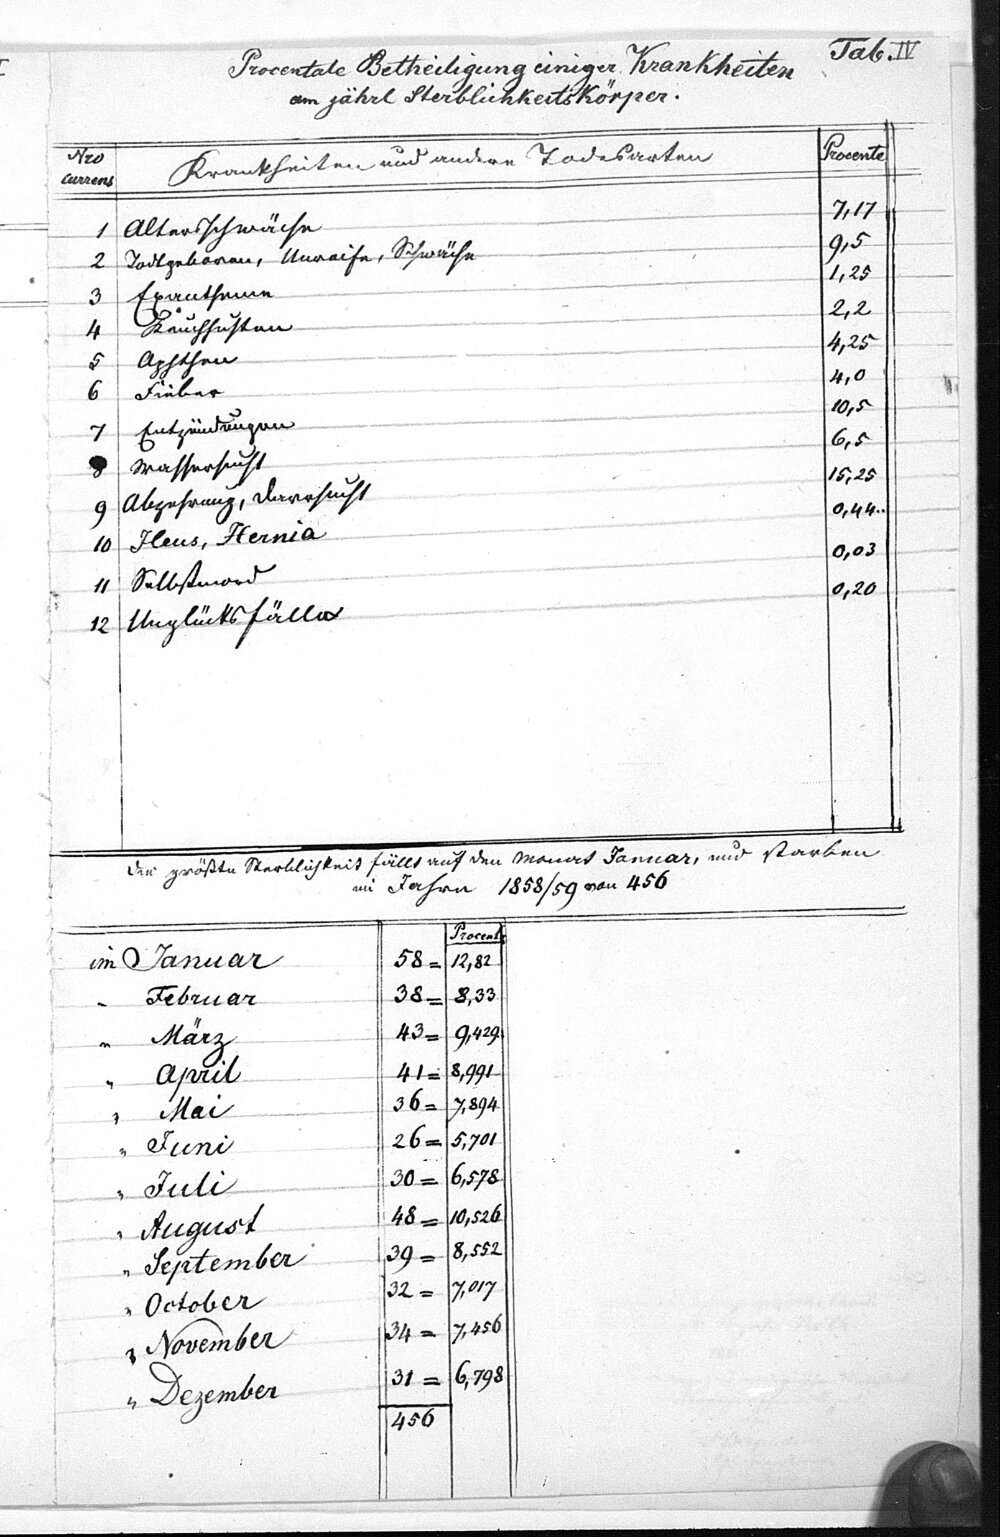 Tab. IV
Procentale Betheiligung einiger Krankheiten
am jährl Sterblichkeitskörper.
Nro currens | Krankheiten und andere Todesarten | Procente
1 Altersschwäche 7,17
2 Todtgeboren, Unreife, Schwäche 9,5
3 Exantheme 1,25
4 Keuchhusten 2,2
5 Aphthen 4,25
6 Fieber 4,0
7 Entzündungen 10,5
8 Wassersucht 6,5
9 Abzehrung, Darrsucht 15,25
10 Ileus, Hernia 0,44
11 Selbstmord 0,03
12 Unglücksfälle 0,20
Die größte Sterblichkeit fällt auf den Monat Januar, und starben
im Jahre 1858/59 von 456
Procent
im Januar 58 = 12,82
" Februar 38 = 8,33
" März 43 = 9,429
" April 41 = 8,991
" Mai 36 = 7,894
" Juni 26 = 5,701
" Juli 30 = 6,578
" August 48 = 10,526
" September 39 = 8,552
" October 32 = 7,017
" November 34 = 7,456
" Dezember 31 = 6,798
456